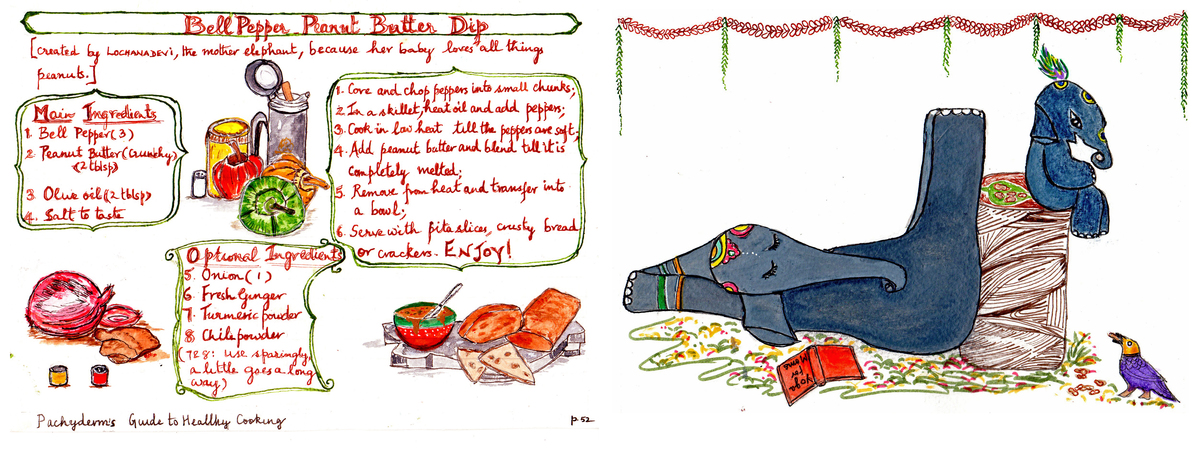 Bell Pepper Peanut Butter Dip
[created by LOCHANADEVI, the mother elephant, because her baby loves all things
peanuts.]
Main Ingredients
1. Bell Pepper (3)
2. Peanut Butter (Crunchy)
(2 tblsp)
3. Olive oil (2 tblsp)
4. Salt to taste
1. Core and chop peppers into small chunks;
2. In a skillet, heat oil and add peppers;
3. Cook in low heat till the peppers are soft;
4. Add peanut butter and blend till it is
completely melted;
5. Remove from heat and transfer into
a bowl;
6. Serve with pita slices, crusty bread
or crackers. ENJOY!
Optional Ingredients
5. Onion (1)
6. Fresh Ginger
7. Turmeric powder
8. Chile powder
(7 & 8: use sparingly,
a little goes a long
way)
Pachyderm's Guide to Healthy Cooking
p. 52
Yoga
for
Moms